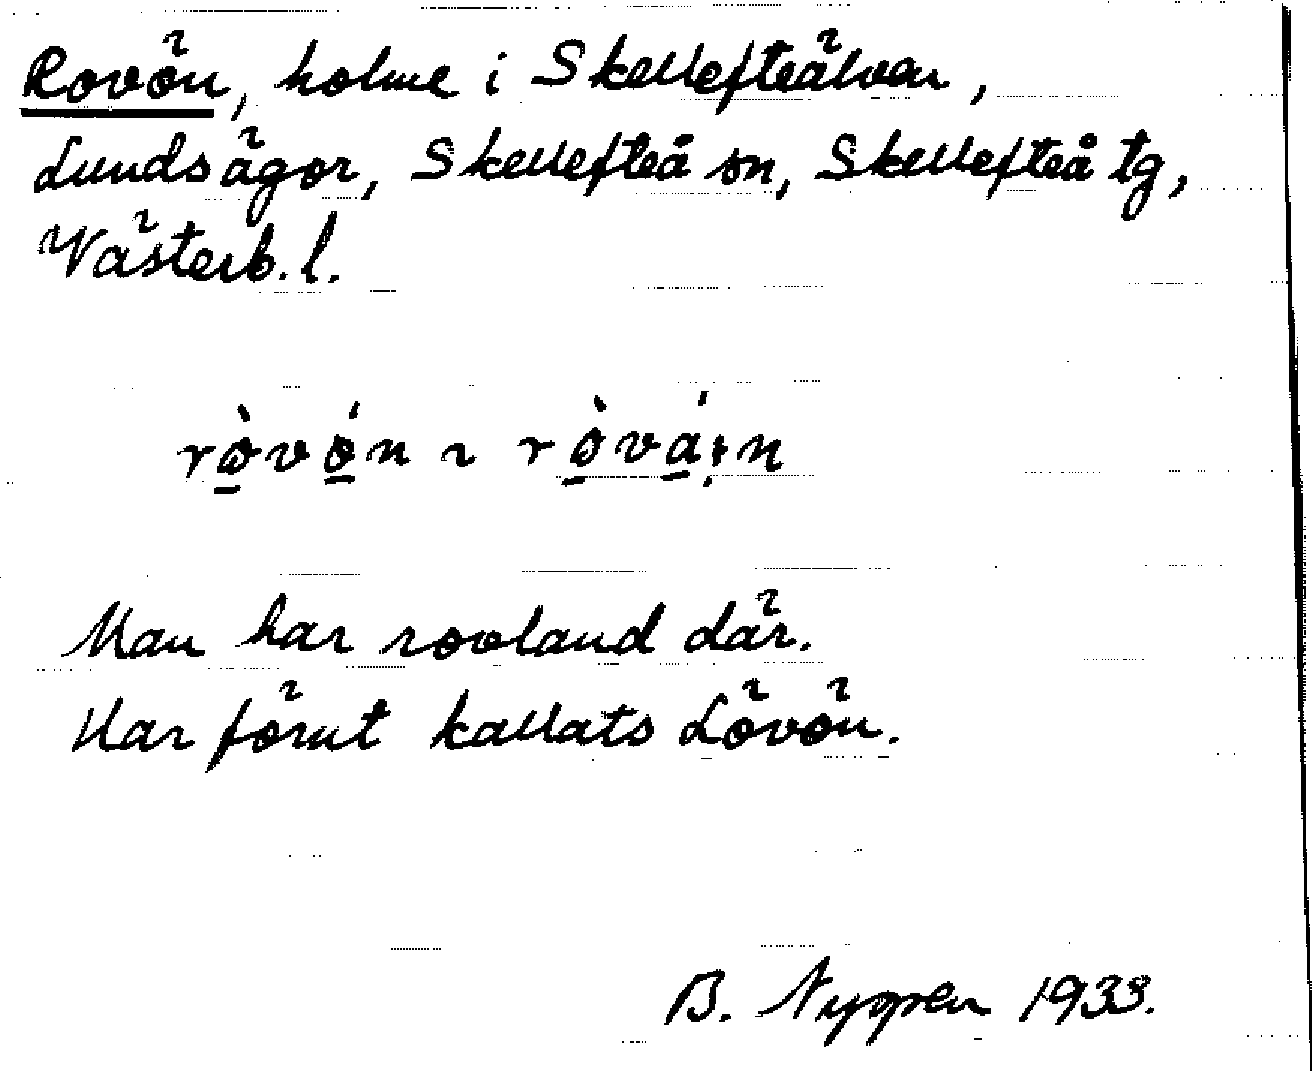 Rovön, holme i Skellefteälven,
Lunds ägor, Skellefteå sn, Skellefteå tg,
Västerb. l.
Man har rovland där.
Har förut kallats Lövön.
B. Nyppen 1933.